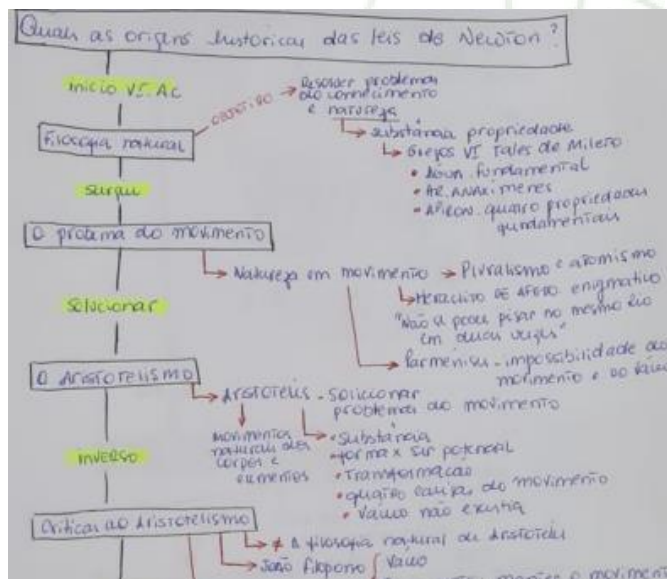 Quais as origens históricas das leis de Newton?
início VI. Ac
OBJETIVO
Resolver problemas
do conhecimento
e natureza
Filosofia natural
substância propriedade
Gregos VI Tales de Mileto
• Água. fundamental
• AR. ANAXÍMENES
quatro propriedades
fundamentais
surgiu
O problema do movimento
Natureza em movimento
Pluralismo e atomismo
Heráclito DE enigmático
"Não se pode pisar no mesmo rio
em duas vezes"
impossibilidade do
movimento e do vácuo
solucionar
O Aristotelismo
Aristóteles - solucionar
problemas do movimento
movimentos
naturais dos
corpos e
elementos
• Substância
• forma x ser potencial
• Transformação
• quatro causas do movimento
• Vácuo não existia
inverso
Críticas ao Aristotelismo
≠ A filosofia natural de Aristóteles
João filopono
Vácuo
o movimento